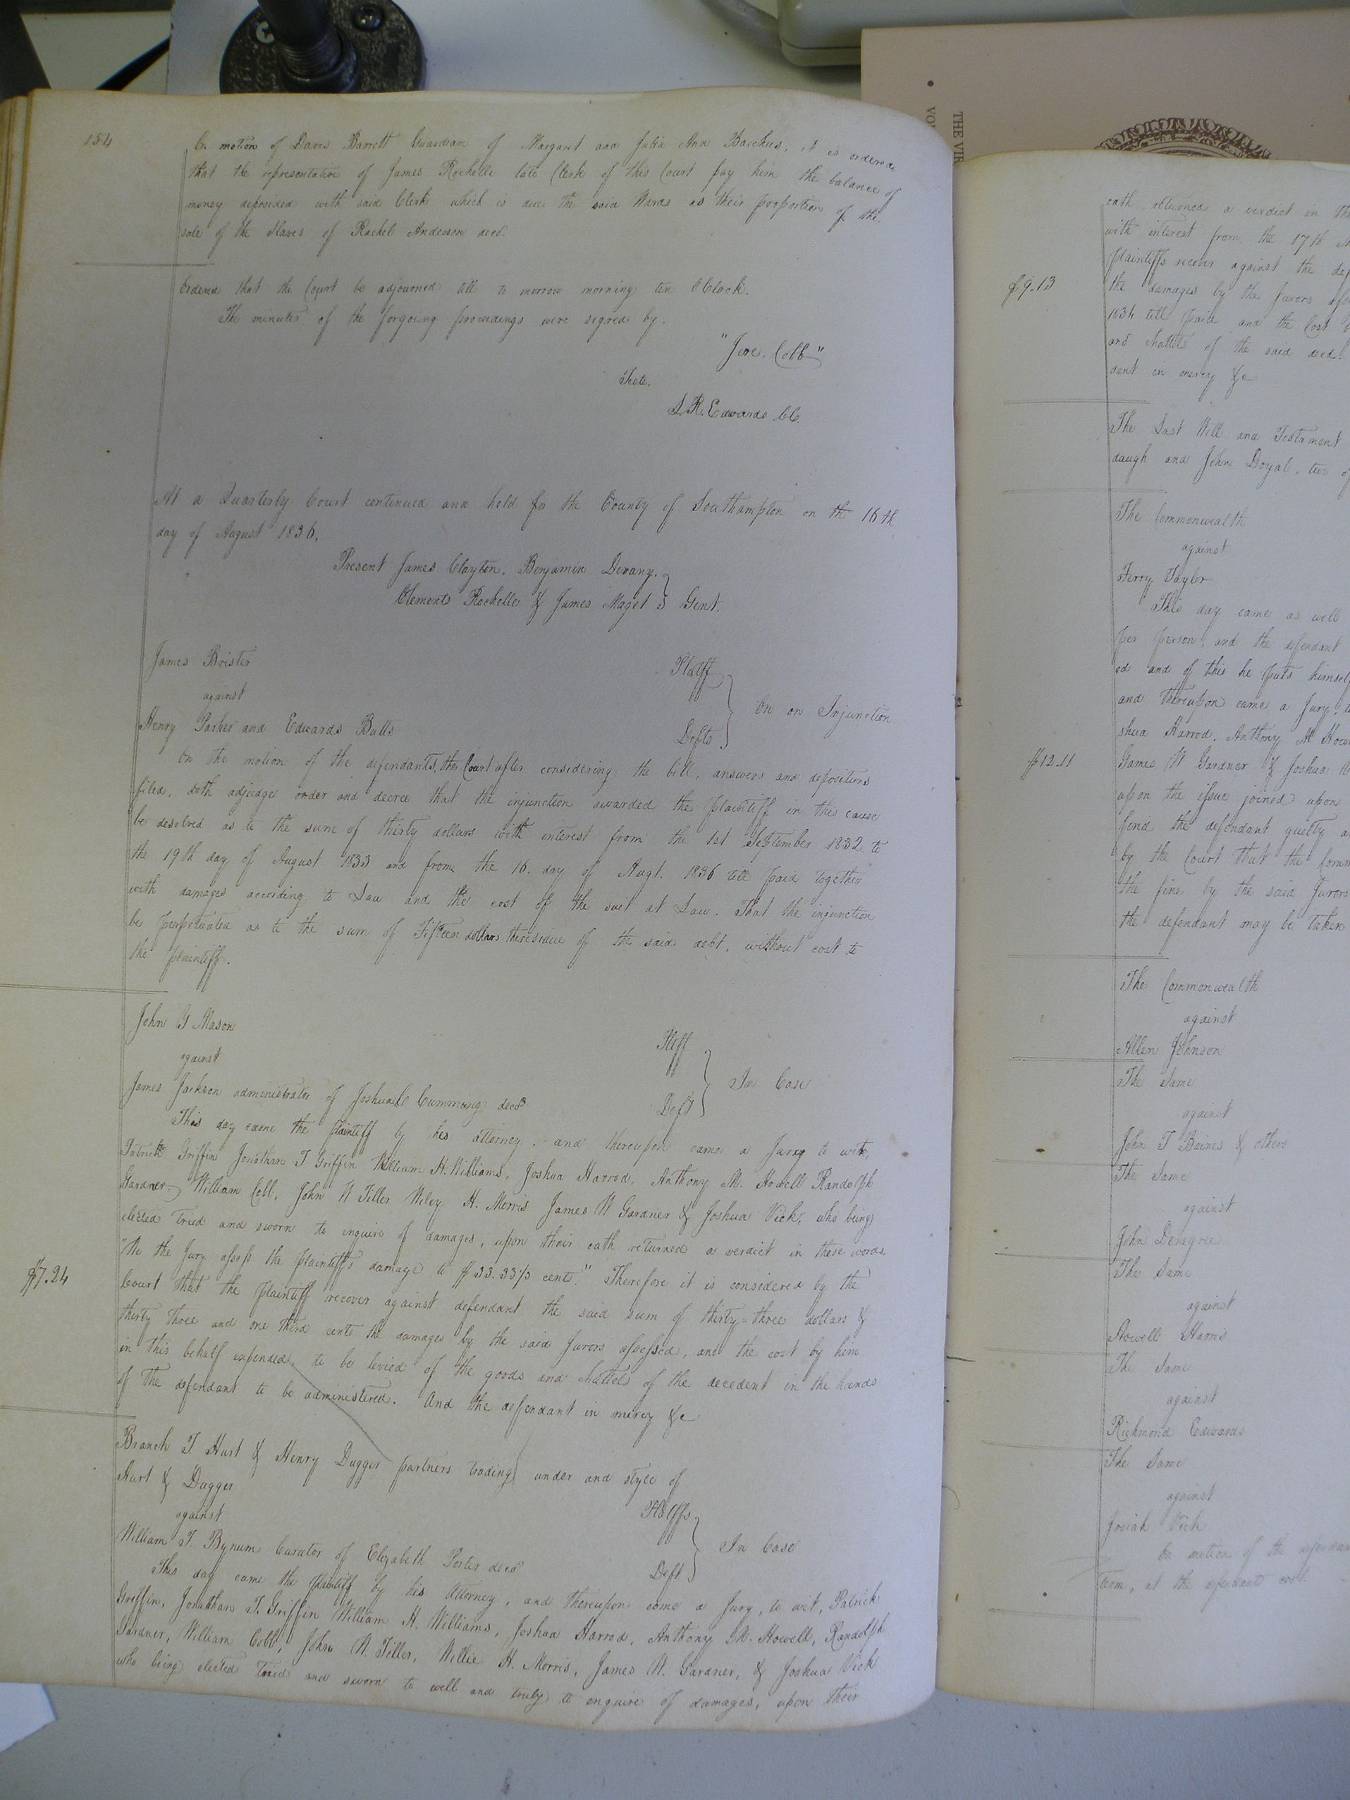 154
On motion of Davis Barrett Guardian of Margaret and Julia Ann Bacchus, it is ordered
that the representative of James Rochelle late Clerk of this Court pay him the balance of
money deposited with said Clerk which is due the said Wards as their proportion of the
sale of the Slaves of Rachel Anderson decd.
Ordered that the Court be adjourned till to morrow morning ten OClock.
The minutes of the forgoing proceedings were signed by.
"Jere. Cobb"
Teste.
L. R. Edwards CC.
At a Quarterly Court continued and held for the County of Southampton on the 16th
day of August 1836.
Present James Clayton. Benjamin Devany.
Clements Rochelle & James Maget } Gent.
James Brister Plaff
against
Henry Parker and Edwards Butts Defts } On an Injunction
On the motion of the defendants, the Court after considering the bill, answers and depositions
filed, doth adjudge order and decree that the injunction awarded the plaintiff in this cause
be desolved as to the sum of thirty dollars with interest from the 1st September 1832 to
the 19th day of August 1833 and from the 16. day of Augt. 1836 till paid together
with damages according to Law and the cost of the suit at Law. That the injunction
be perpetuated as to the sum of Fifteen dollars the residue of the said debt, without cost to
the plaintiff.
John Y Mason Plff
against
James Jackson administrator of Joshua Cummings decd Deft } In Case
This day came the plaintiff by his attorney, and thereupon came a Jury to wit,
Patrick Griffin Jonathan T Griffin William H. Williams, Joshua Harrod, Anthony M. Howell Randolph
Gardner, William Cobb, John W Teller Wiley H. Morris James W Gardner & Joshua Vick, who being
elected tried and sworn to inquire of damages, upon their oath returned a verdict in these words
"We the Jury assess the plaintiffs damage to $33.33⅓ cent." Therefore it is considered by the
$7.24
Court that the plaintiff recover against defendant the said sum of thirty-three dollars &
thirty three and one third cents the damages by the said Jurors assessed, and the cost by him
in this behalf expended, to be levied of the goods and chattels of the decedent in the hands
of the defendant to be administered. And the defendant in mercy &c
Branch T. Hurt & Henry Dugger partners trading under and style of
Hurt & Dugger Plffs
against
William T. Bynum Curator of Elizabeth Porter decd Deft } In Case
This day came the plaintiff by his Attorney, and thereupon came a Jury, to wit, Patrick
Griffin, Jonathan T. Griffin William H. Williams, Joshua Harrod, Anthony M. Howell, Randolph
Gardner, William Cobb, John W. Teller, Willie H. Morris, James W. Gardner, & Joshua Vick
who being elected tried and sworn to well and truly to enquire of damages, upon their
oath returned a verdict in
with interest from the 17th
plaintiffs recover against the
$9.13
the damages by the Jurors
1834 till paid and the Cost
and chattels of the said decd.
dant in mercy &c
The Last Will and Testament
daugh and John Doyal
The Commonwealth
against
Terry Taylor
This day came as well
per person, and the defendant
ed and of this he puts himself
and thereupon came a Jury,
shua Harrod, Anthony M
$12.11
James W Gardner & Joshua
upon the issue joined upon
find the defendant guilty
by the Court that the
the fine by the said Jurors
the defendant may be taken
The Commonwealth
against
Allen Johnson
The Same
against
John T Baines & others
The Same
against
John
The Same
against
Howell Harris
The Same
against
Richmond Edwards
The Same
against
Josiah Vick
On motion of the
term, at the
THE VIR
VO